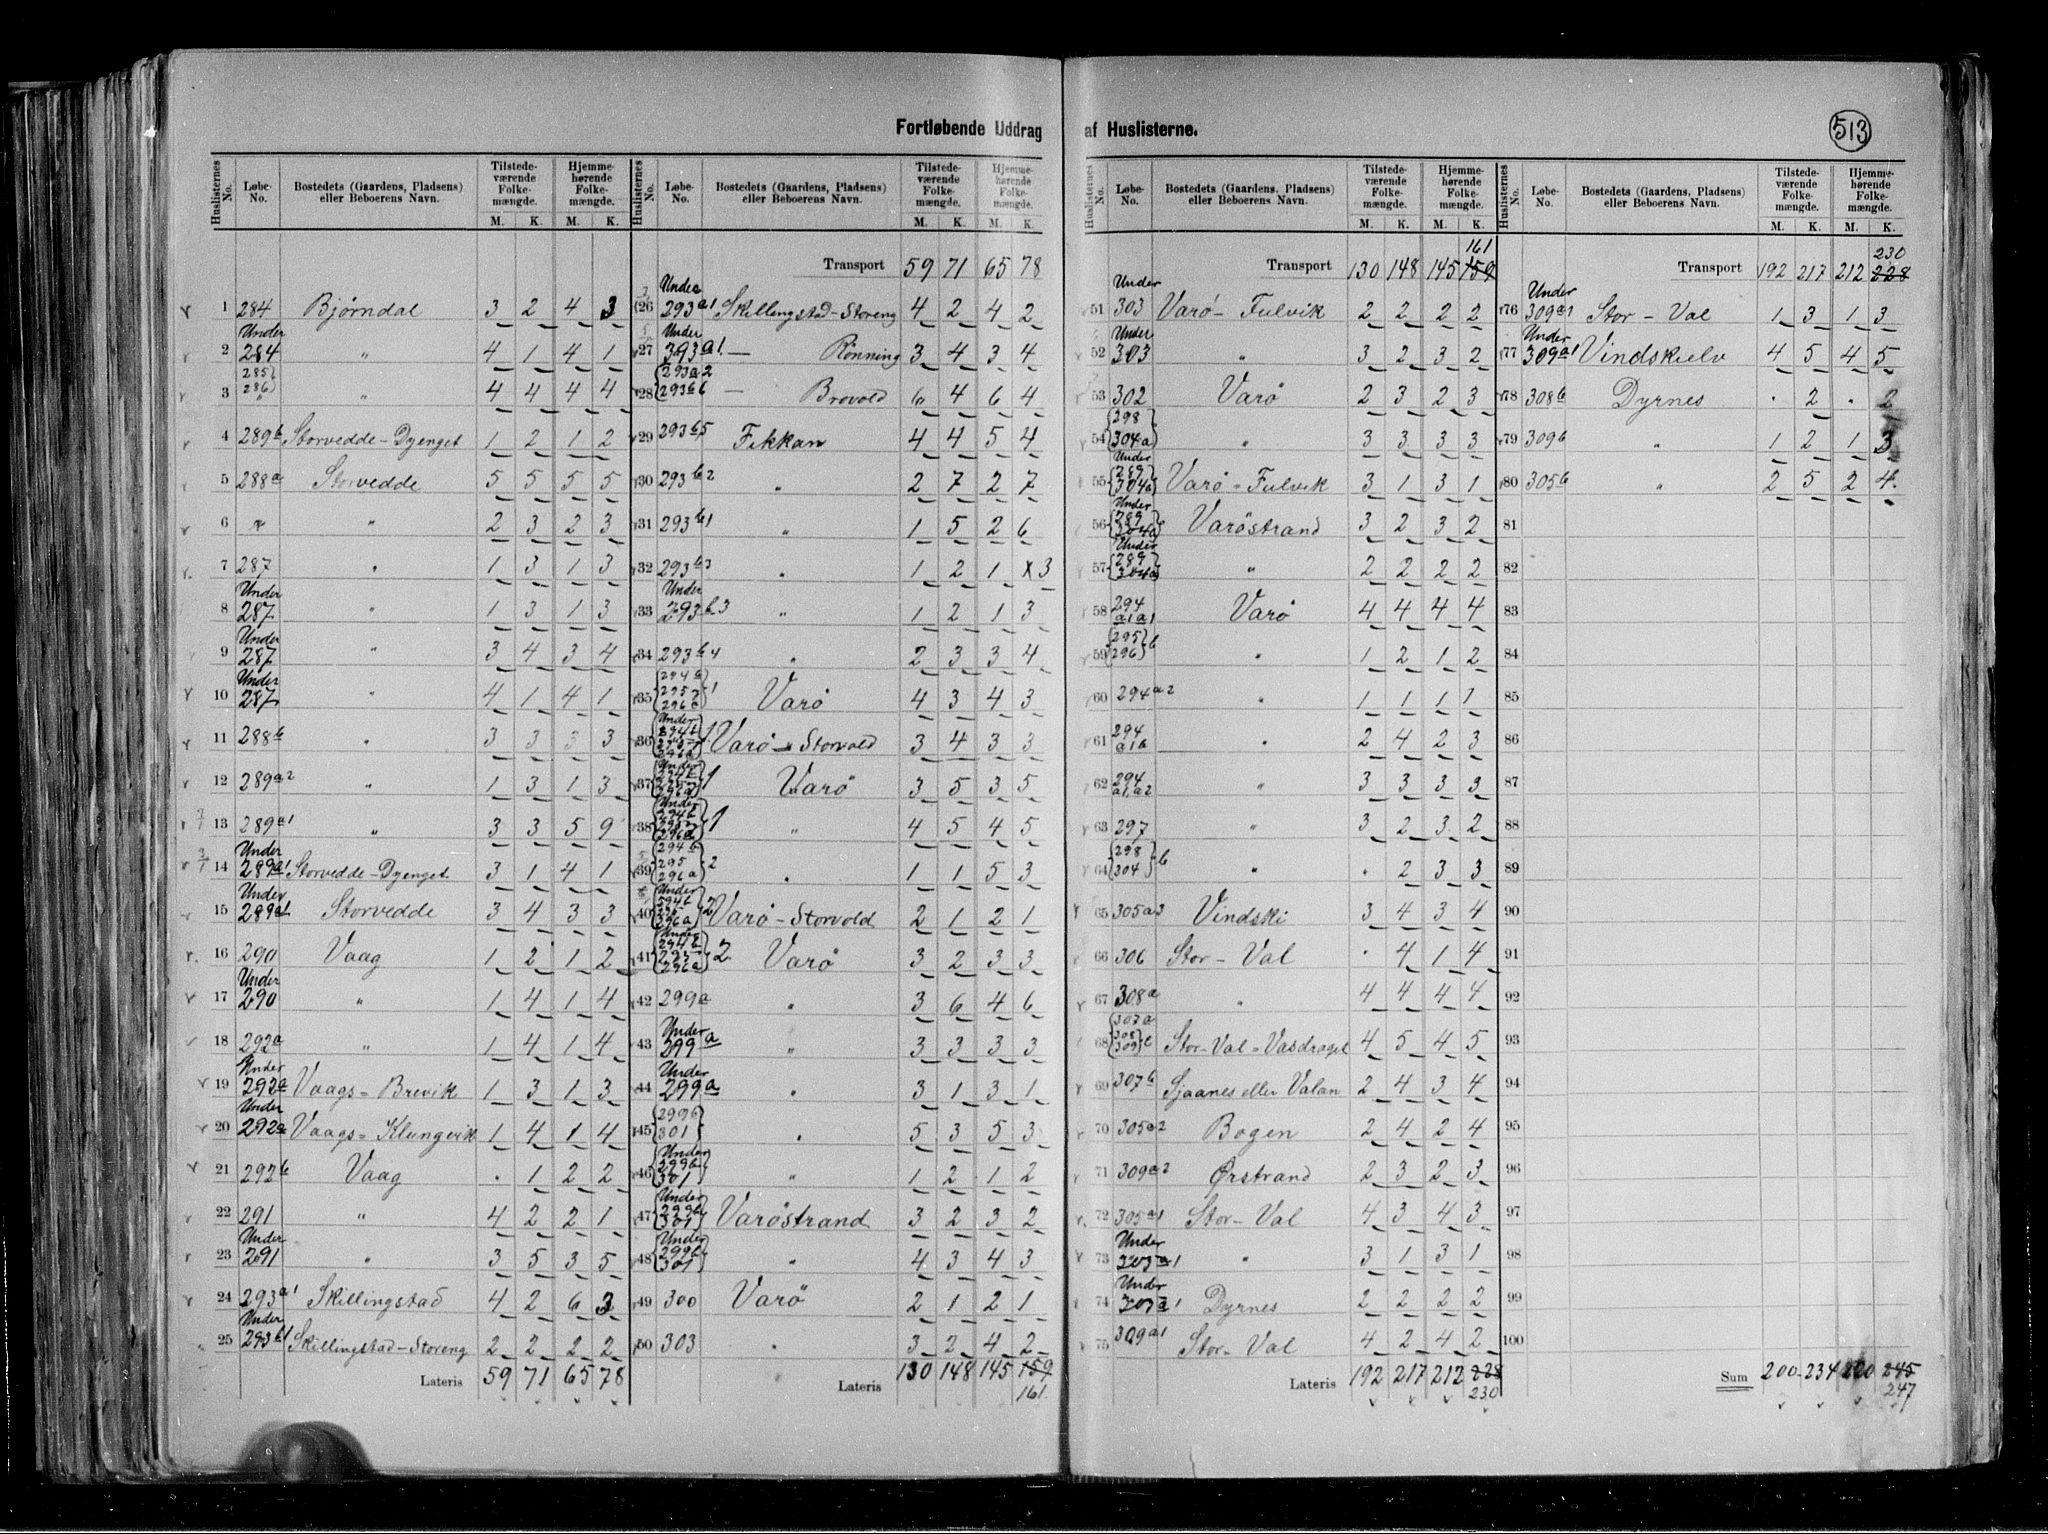 Fortløbende Uddrag af Huslisterne.
513
Huslisternes No. Løbe-No. Bostedets (Gaardens, Pladsens) eller Beboerens Navn. Tilstedeværende Folkemængde. M. K. Hjemmehørende Folkemængde. M. K.
1 284 Bjørndal 3 2 4 3
2 Under 284 " 4 1 4 1
3 285 286 " 4 4 4 4
4 289b Storvedde-Dyenget 1 2 1 2
5 288a Storvedde 5 5 5 5
6 " " 2 3 2 3
7 287 " 1 3 1 3
8 Under 287 " 1 3 1 3
9 Under 287 " 3 4 3 4
10 Under 287 " 4 1 4 1
11 288b " 3 3 3 3
12 289a2 " 1 3 1 3
13 289a1 " 3 3 5 9
14 Under 289a1 Storvedde-Dyenget 3 1 4 1
15 Under 289a1 Storvedde 3 4 3 3
16 290 Vaag 1 2 1 2
17 Under 290 " 1 4 1 4
18 292a " 1 4 1 4
19 Under 292a Vaags=Brevik 1 3 1 3
20 Under 292a Vaags=Klungvik 1 4 1 4
21 292b Vaag . 1 2 2
22 291 " 4 2 2 1
23 Under 291 " 3 5 3 5
24 293a1 Skillingstad 4 2 6 3
25 Under 293b1 Skillingstad-Storeng 2 2 2 2
Lateris 59 71 65 78
Huslisternes No. Løbe-No. Bostedets (Gaardens, Pladsens) eller Beboerens Navn. Tilstedeværende Folkemængde. M. K. Hjemmehørende Folkemængde. M. K.
Transport 59 71 65 78
26 Under 293a1 Skillingstad-Storeng 4 2 4 2
27 Under 293a1. — Rønning 3 4 3 4
28 293a2 293b6 — Brovold 6 4 6 4
29 293b5 Fikkan 4 4 5 4
30 293b2 " 2 7 2 7
31 293b1 " 1 5 2 6
32 293b3 " 1 2 1 3
33 Under 293b3 " 1 2 1 3
34 293b4 " 2 3 3 4
35 294b 295 296a 1 Varø 4 3 4 3
36 Under 294b 295 296a 1 Varø-Storvold 3 4 3 3
37 Under 294b 295 296a 1 Varø 3 5 3 5
38 Under 294b 295 296a 1 " 4 5 4 5
39 294b 295 296a 2 " 1 1 5 3
40 Under 294b 295 296a 2 Varø-Storvold 2 1 2 1
41 Under 294b 295 296a 2 Varø 3 2 3 3
42 299a " 3 6 4 6
43 Under 299a " 3 3 3 3
44 Under 299a " 3 1 3 1
45 299b 301 " 5 3 5 3
46 Under 299b 301 " 1 2 1 2
47 Under 299b 301 Varøstrand 3 2 3 2
48 Under 299b 301 " 4 3 4 3
49 300 Varø 2 1 2 1
50 303 " 3 2 4 2
Lateris 130 148 145 159
161
Huslisternes No. Løbe-No. Bostedets (Gaardens, Pladsens) eller Beboerens Navn. Tilstedeværende Folkemængde. M. K. Hjemmehørende Folkemængde. M. K.
161
Transport 130 148 145 159
51 Under 303 Varø-Fulvik 2 2 2 2
52 Under 303 " 3 2 3 2
53 302 Varø 2 3 2 3
54 298 304a " 3 3 3 3
55 Under 289 304a Varø=Fulvik 3 1 3 1
56 Under 289 304a Varøstrand 3 2 3 2
57 Under 289 304a " 2 2 2 2
58 294 a1a1 Varø 4 4 4 4
59 295 296 b " 1 2 1 2
60 294a2 " 1 1 1 1
61 294 a1b " 2 4 2 3
62 294 a1a2 " 3 3 3 3
63 297 " 3 2 3 2
64 298 304 b " . 2 3 3
65 305a3 Vindski 3 4 3 4
66 306 Stor-Val . 4 1 4
67 308a " 4 4 4 4
68 307a 308 309 c Stor-Val-Vasdraget 4 5 4 5
69 307b Sjaanes eller Valan 2 4 3 4
70 305a2 Bogen 2 4 2 4
71 309a2 Ørstrand 2 3 2 3
72 305a1 Stor-Val 4 3 4 3
73 Under 305a1 " 3 1 3 1
74 Under 305a1 Dyrnes 2 2 2 2
75 309a1 Stor-Val 4 2 4 2
Lateris 192 217 212 228
230
Huslisternes No. Løbe-No. Bostedets (Gaardens, Pladsens) eller Beboerens Navn. Tilstedeværende Folkemængde. M. K. Hjemmehørende Folkemængde. M. K.
230
Transport 192 217 212 228
76 Under 309a1 Stor-Val 1 3 1 3
77 Under 309a1 Vindskielv 4 5 4 5
78 308b Dyrnes . 2 . 2
79 309b " 1 2 1 3
80 305b " 2 5 2 4
81
82
83
84
85
86
87
88
89
90
91
92
93
94
95
96
97
98
99
100
Sum 200 234 220 245
247